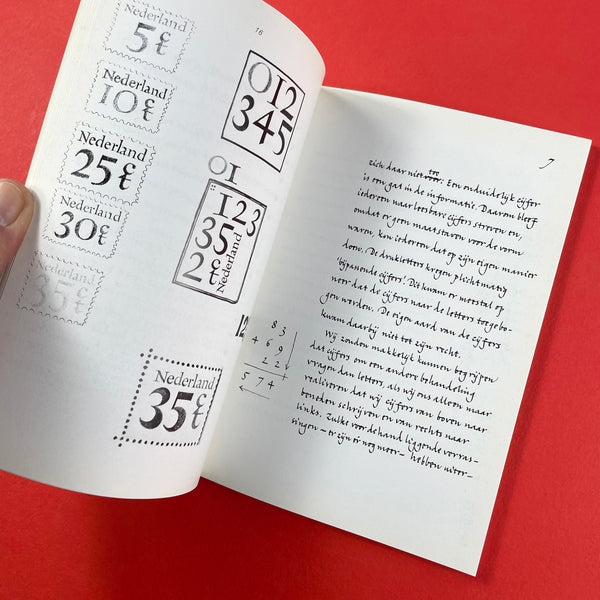 16
Nederland
5 c
Nederland
10 c
Nederland
25 c
Nederland
30 c
Nederland
35 c
012
345
01
123
35
2 c
Nederland
12
Nederland
35 c
7
toe
zich daar niet voor. Een onduidelijk cijfer
is een gat in de informatie. Daarom bleef
iedereen naar leesbare cijfers streven en,
omdat er geen maatstaven voor de vorm
waren, kon iedereen dat op zijn eigen manier
doen. De drukletters kregen plichtmatig
'bijpassende cijfers'. Dit kwam er meestal op
neer dat de cijfers naar de letters toegebo-
gen werden. De eigen aard van de cijfers
kwam daarbij niet tot zijn recht.
Wij zouden makkelijk kunnen begrijpen
dat cijfers om een andere behandeling
vragen dan letters, als wij ons alleen maar
realiseren dat wij cijfers van boven naar
beneden schrijven en van rechts naar
links. Zulke voor de hand liggende verras-
singen – er zijn er nog meer – hebben uiter-
8 3
+ 6 9
2 2
5 7 4